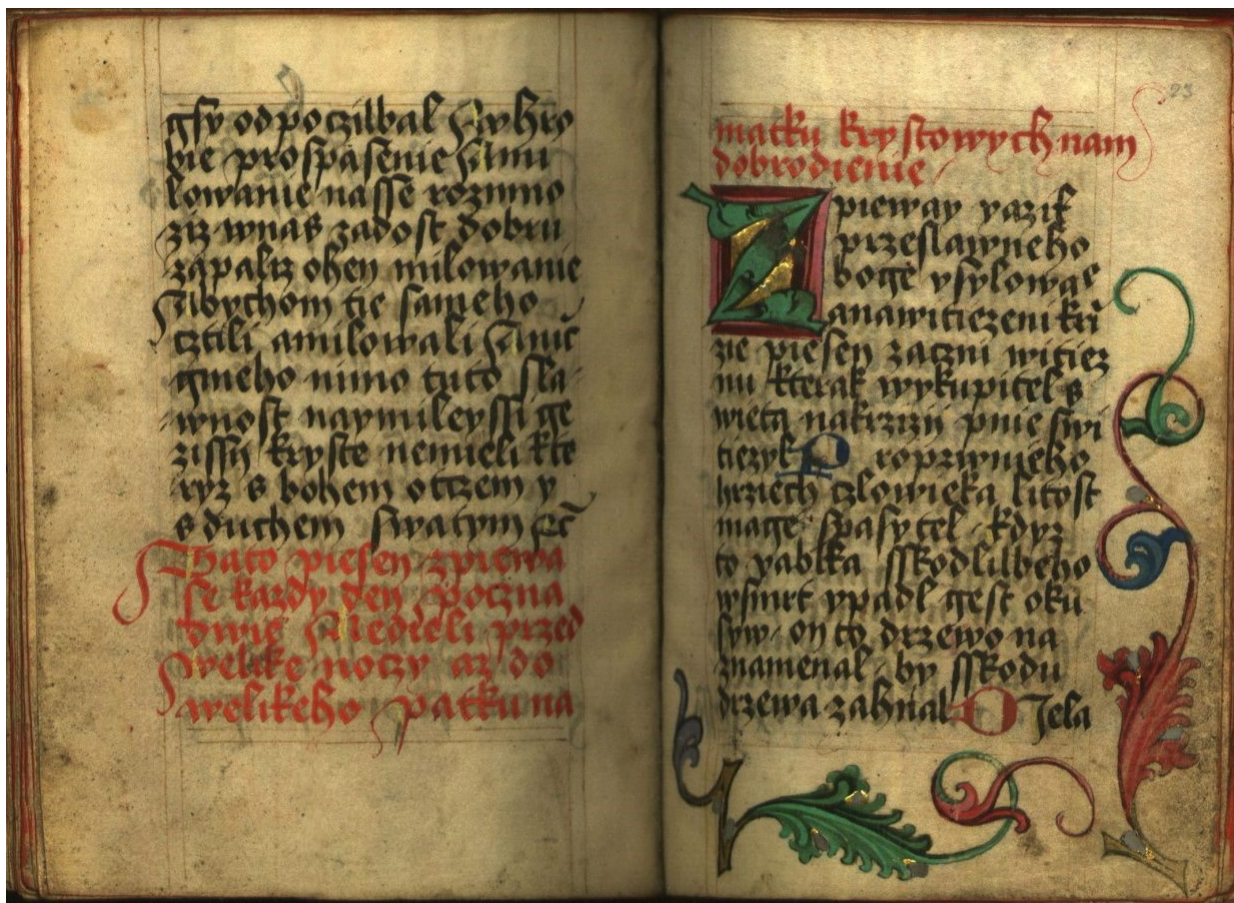 gsy odpocziwal Awhro
bie prospasenie Ami
lowanie nasse rozmno
ziz wnas zadost dobru
zapaliz ohen milowanie
Abychom tie sameho
cztili amilowali Anic
gineho mimo tuto sla
wnost naymileyssi ge
zissy kryste nemieli kte
ryz s bohem otczem y
s duchem swatym
Thato piesen zpiewa
se kazdy den poczna
dwie Nedieli przed
welike noczy az do
welikeho patku na
23
matku krystowych nam
dobrodienie
Zpieway yazik
przeslawneho
boge vsylowas
anawitiezeni krü
zie piesen zaczni witiez
nu kterak wykupitel s
wieta nakrzizij pnie swi
tiezyl P roprzwnieho
hrziech czlowieka litost
mage spasytel kdyz
to yablka sskodliweho
wsmrt vpadl gest oku
syw on to drzewo na
znamenal by sskodu
drzewa zahnal D Jela